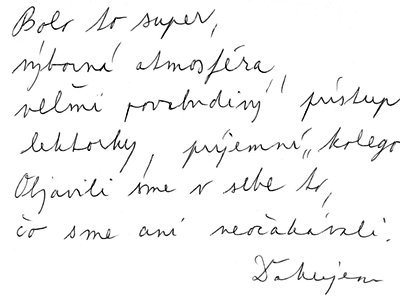 Bolo to super,
výborná atmosféra,
veľmi "povzbudivý" prístup
lektorky, príjemní "kolego
Objavili sme v sebe to,
čo sme ani neočakávali.
Ďakujem